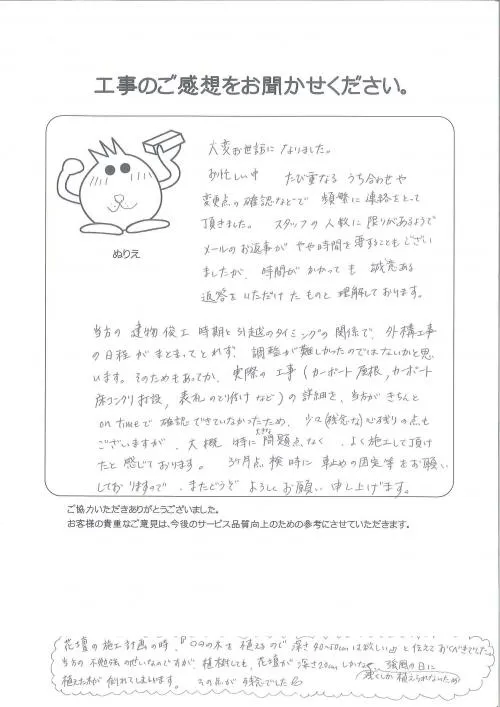 工事のご感想をお聞かせください。
大変お世話に なりました。
お忙しい中 たび重なる うち合わせや
変更点の確認などで 頻繁に連絡をとって
頂きました。 スタッフの人数に限りがあるようで
メールのお返事が やや時間を要することもござい
ましたが、時間が かかっても 誠意ある
返答をいただけたものと理解しております。
ぬりえ
当方の 建物 竣工 時期と引越のタイミングの関係で、外構工事
の日程が まとまってとれず、調整が難しかったのではないかと思
います。そのためもあってか、実際の工事(カーポート屋根,カーポート
床コンクリ打設, 表札のとり付けなど)の詳細を、当方がきちんと
on timeで確認できていなかったため、少々(残念な)心残りの点も
ございますが、大概 特に大きな問題点なく、よく施工して頂け
たと感じております。 3ヶ月点検時に 車止めの固定等をお願い
しておりますので、またどうぞ よろしくお願い 申し上げます。
ご協力いただきありがとうございました。
お客様の貴重なご意見は、今後のサービス品質向上のための参考にさせていただきます。
花壇の施工計画の時、『〇〇の木を 植えるので 深さ40~50cmは欲しい』と伝えておくべきでした。
当方の 不勉強のせいなのですが、植樹しても、花壇が 深さ20cmしかなく、強風の日に
(浅くしか植えられないため)
植えた木が倒れてしまいます。 その点が残念でした